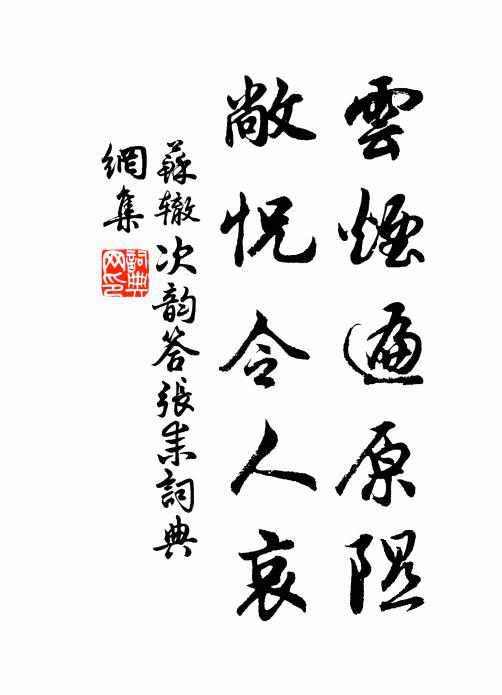 雲煙遍原隰
敞怳令人哀
蘇辙次韵答張耒詞典
網集
詞典網印